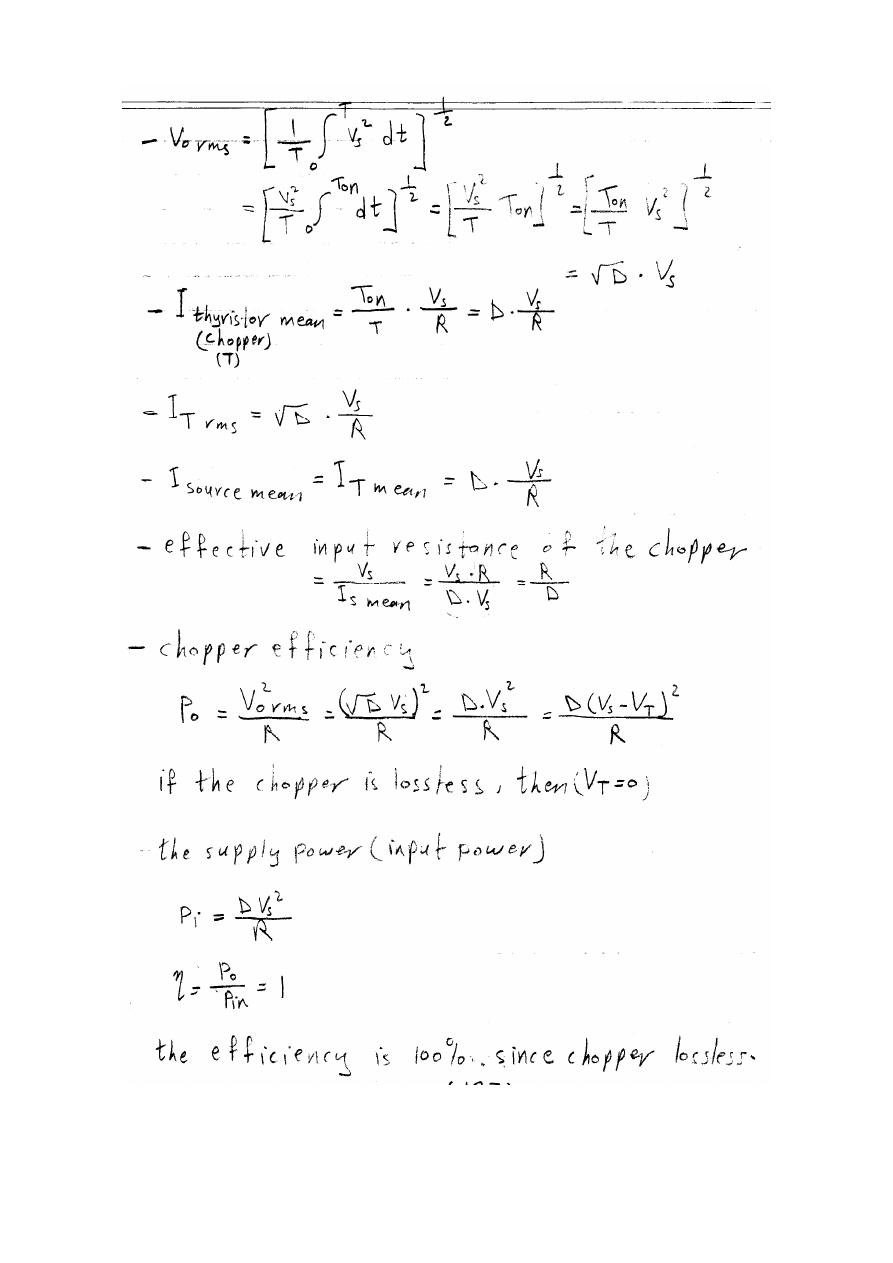 - Vo rms = [ 1/T ∫₀ᵀ Vs² dt ]^1/2
= [ Vs²/T ∫₀^Ton dt ]^1/2 = [ Vs²/T Ton ]^1/2 = [ Ton/T Vs² ]^1/2
= √D . Vs
- I thyristor mean = Ton/T . Vs/R = D . Vs/R
(chopper)
(T)
- IT rms = √D . Vs/R
- I source mean = IT mean = D . Vs/R
- effective input resistance of the chopper
= Vs / Is mean = Vs . R / D . Vs = R/D
- chopper efficiency
Po = Vo² rms / R = (√D Vs)² / R = D.Vs² / R = D(Vs-VT)² / R
if the chopper is lossless, then (VT=0)
the supply power (input power)
Pi = D Vs² / R
η = Po / Pin = 1
the efficiency is 100% . since chopper lossless.